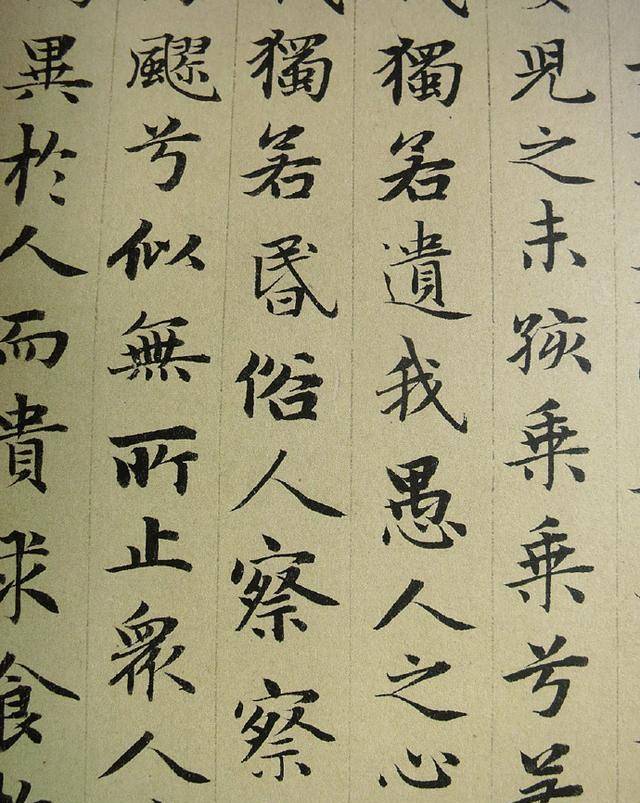 兒之未孩乘乘兮
獨若遺我愚人之心
獨若昬俗人察察
飂兮似無所止眾人
異於人而貴求食